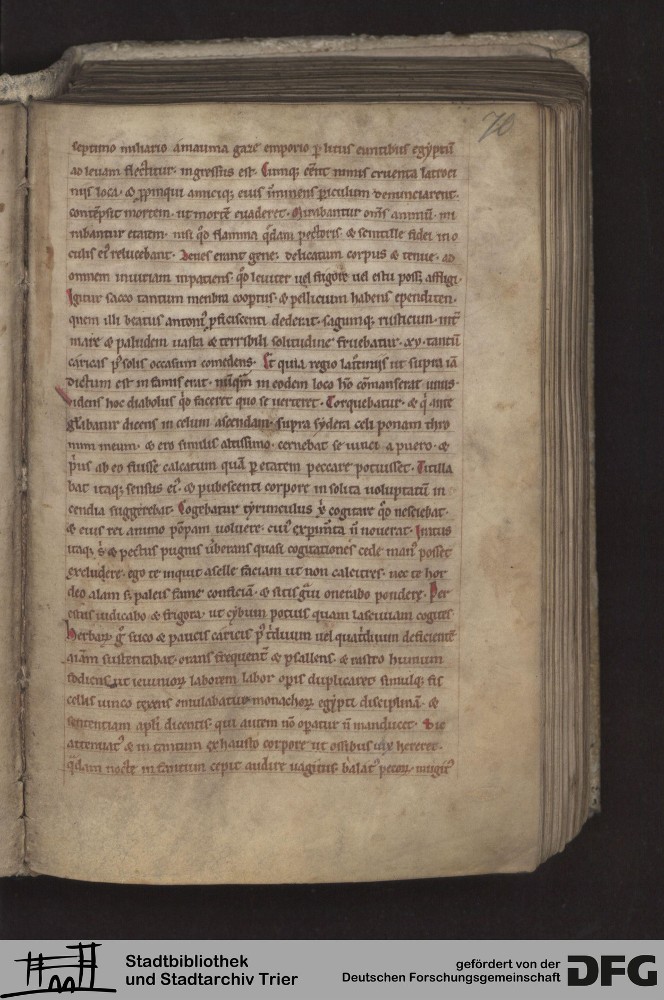 70
septimo miliario amaiuma gaze emporio ꝑ litus euntibus egẏptũ
ad leuam flectitur. ingressus est. Cumq; eẽnt nimis cruenta latroci
nijs loca. & ꝓpinqui amiciq; eius īminens ꝑiculum denunciarent.
contẽpsit mortem. ut mortẽ euaderet. Mirabantur om̃s animũ. mi
rabantur etatem. nisi qđ flamma q̃dam pectoris. & scintille fidei in o
culis eiꝰ relucebant. Leues erant gene. delicatum corpus & tenue. ad
omnem iniuriam inpatiens. qđ leuiter uel frigore uel estu posset affligi.
Igitur sacco tantum menbra coopertus. & pellicium habens ependiten.
quem illi beatus antoniꝰ ꝓficiscenti dederat. sagumq; rusticum. int̃
mare & paludem uasta & terribili solitudine fruebatur. xv. tantũ
caricas pꝰ solis occasum comedens. Et quia regio latrocinijs ut supra iã
dictum est infamis erat. nũq̃m in eodem loco hõ cõmanserat unus.
Videns hoc diabolus qđ faceret quo se uerteret. Torquebatur. & q̇ ante
gl̃iabatur dicens in celum ascendam. supra sẏdera celi ponam thro
num meum. & ero similis altissimo. cernebat se uinci a puero. &
pr̃ius ab eo fuisse calcatum quã ꝑ etatem peccare potuisset. Titilla
bat itaq; sensus eiꝰ. & pubescenti corpore insolita uoluptatũ in
cendia suggerebat. Cogebatur tẏrunculus xp̃i cogitare qđ nesciebat.
& eius rei animo pompam uoluere. cuiꝰ exꝑimta ñ nouerat. Iratus
itaq; s̃ & pectus pugnis ũberans quasi cogitationes cede manꝰ posset
excludere. ego te inquit aselle faciam ut non calcitres. nec te hor
deo alam s; paleis. fame conficiã. & siti. grãui onerabo pondere. Per
estus indicabo & frigora. ut cẏbum potius quam lasciuiam cogites
Herbarꝝ g̃ suco & paucis caricis pꝰ t̃duum uel quat̃duum deficientẽ
aĩam sustentabat. orans frequent̃ & psallens. & rastro humum
fodiens. ut ieiuniorꝝ laborem labor opis duplicaret. simulq; fis
cellis uinco texens emulabatur monachorꝝ egẏpti disciplinã. &
sententiam apl̃i dicentis. qui autem nõ opatur ñ manducet. Sic
attenuatꝰ & in tantum exhausto corpore ut ossibus uix hereret.
q̃dam nocte infantum cepit audire uagitus. balatꝰ pecorꝝ. mugitꝰ
Stadtbibliothek
und Stadtarchiv Trier
gefördert von der
Deutschen Forschungsgemeinschaft
DFG